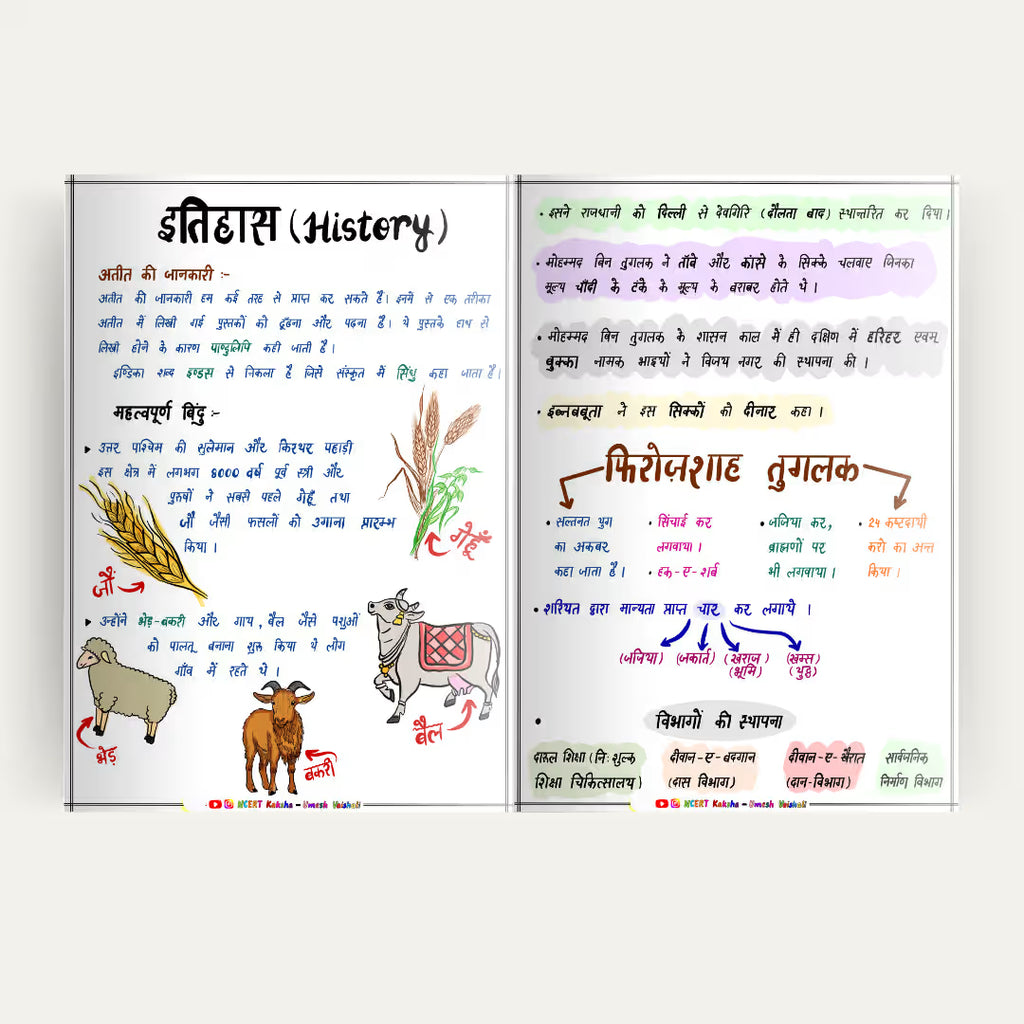 इतिहास (History)
अतीत की जानकारी :-
अतीत की जानकारी हम कई तरह से प्राप्त कर सकते है। इनमें से एक तरीका
अतीत में लिखी गई पुस्तकों को ढूंढना और पढना है। ये पुस्तके हाथ से
लिखी होने के कारण पाण्डुलिपि कही जाती है।
इण्डिका शब्द इण्डस से निकला है जिसे संस्कृत में सिंधु कहा जाता है।
महत्वपूर्ण बिंदु :-
उत्तर पाश्चिम की सुलेमान और किरथर पहाड़ी
इस क्षेत्र में लगभग 8000 वर्ष पूर्व स्त्री और
पुरुषों ने सबसे पहले गेहूँ तथा
जौ जैसी फसलों को उगाना प्रारम्भ
किया।
गेहूँ
जौं
उन्होंने भेड़-बकरी और गाय, बैल जैसे पशुओं
को पालतू बनाना शुरू किया ये लोग
गाँव में रहते थे।
भेड़
बकरी
बैल
NCERT Kaksha - Umesh Vaishali
• इसने राजधानी को दिल्ली से देवगिरि (दौलता बाद) स्थान्तरित कर दिया।
• मोहम्मद बिन तुगलक ने ताँबे और कांसे के सिक्के चलवाए जिनका
मूल्य चाँदी के टंके के मूल्य के बराबर होते थे।
• मोहम्मद बिन तुगलक के शासन काल में ही दक्षिण में हरिहर एवम्
बुक्का नामक भाइयों ने विजय नगर की स्थापना की।
• इब्नबबूता ने इस सिक्कों को दीनार कहा।
फिरोज़शाह तुगलक
• सल्तनत युग
का अकबर
कहा जाता है।
• सिंचाई कर
लगवाया।
• हक-ए-शर्ब
• जजिया कर,
ब्राह्मणों पर
भी लगवाया।
• 24 कष्टदायी
करो का अन्त
किया।
• शरियत द्वारा मान्यता प्राप्त चार कर लगाये।
(जजिया) (जकात) (खराज) (खम्स)
(भूमि) (युद्ध)
• विभागों की स्थापना
दारुल शिक्षा (निःशुल्क
शिक्षा चिकित्सालय)
दीवान-ए-बदगान
(दास विभाग)
दीवान-ए-खैरात
(दान-विभाग)
सार्वजनिक
निर्माण विभाग
NCERT Kaksha - Umesh Vaishali